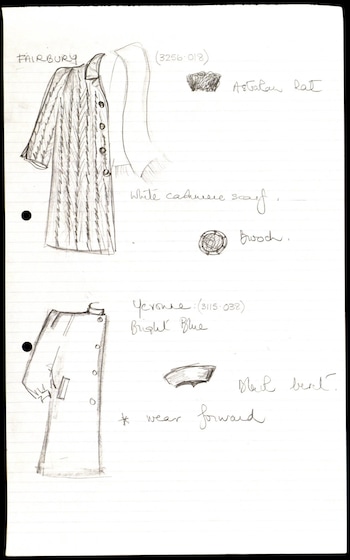 FAIRBURY (3256-018)
Hat
White cashmere scarf.
Brooch.
(3115-038)
Bright Blue
Black beret.
* wear forward